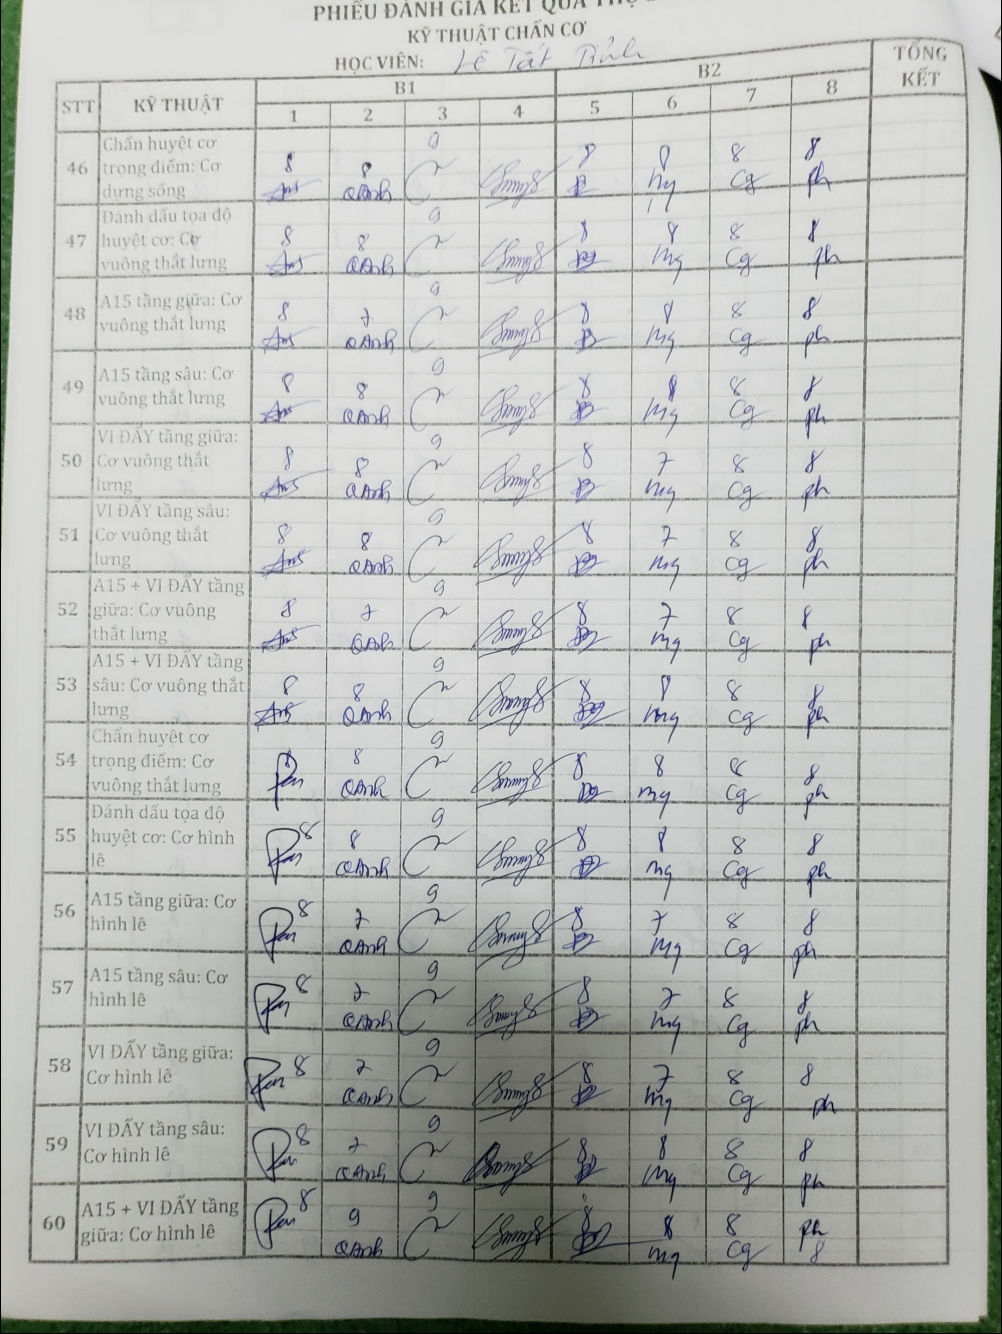 PHIẾU ĐÁNH GIÁ KẾT QUẢ
KỸ THUẬT CHẨN CƠ
HỌC VIÊN: Lê Tất Tỉnh
STT KỸ THUẬT B1 B2 TỔNG KẾT
1 2 3 4 5 6 7 8
46 Chẩn huyệt cơ trọng điểm: Cơ dựng sống
8 8 9 8 8 8 8 8
QAnh mq Cg ph
47 Đánh dấu tọa độ huyệt cơ: Cơ vuông thắt lưng
8 8 9 8 8 8 8 8
QAnh mq Cg ph
48 A15 tầng giữa: Cơ vuông thắt lưng
8 7 9 8 8 8 8 8
QAnh mq Cg ph
49 A15 tầng sâu: Cơ vuông thắt lưng
8 8 9 8 8 8 8 8
QAnh mq Cg ph
50 VI ĐẨY tầng giữa: Cơ vuông thắt lưng
8 8 9 8 8 7 8 8
QAnh mq Cg ph
51 VI ĐẨY tầng sâu: Cơ vuông thắt lưng
8 8 9 8 8 7 8 8
QAnh mq Cg ph
52 A15 + VI ĐẨY tầng giữa: Cơ vuông thắt lưng
8 7 9 8 8 7 8 8
QAnh mq Cg ph
53 A15 + VI ĐẨY tầng sâu: Cơ vuông thắt lưng
8 8 9 8 8 8 8 8
QAnh mq Cg ph
54 Chẩn huyệt cơ trọng điểm: Cơ vuông thắt lưng
8 8 9 8 8 8 8 8
QAnh mq Cg ph
55 Đánh dấu tọa độ huyệt cơ: Cơ hình lê
8 8 9 8 8 8 8 8
QAnh mq Cg ph
56 A15 tầng giữa: Cơ hình lê
8 7 9 8 8 7 8 8
QAnh mq Cg ph
57 A15 tầng sâu: Cơ hình lê
8 7 9 8 8 7 8 8
QAnh mq Cg ph
58 VI ĐẨY tầng giữa: Cơ hình lê
8 7 9 8 8 7 8 8
QAnh mq Cg ph
59 VI ĐẨY tầng sâu: Cơ hình lê
8 7 9 8 8 8 8 8
QAnh mq Cg ph
60 A15 + VI ĐẨY tầng giữa: Cơ hình lê
8 9 9 8 8 8 8 ph
QAnh mq Cg 8